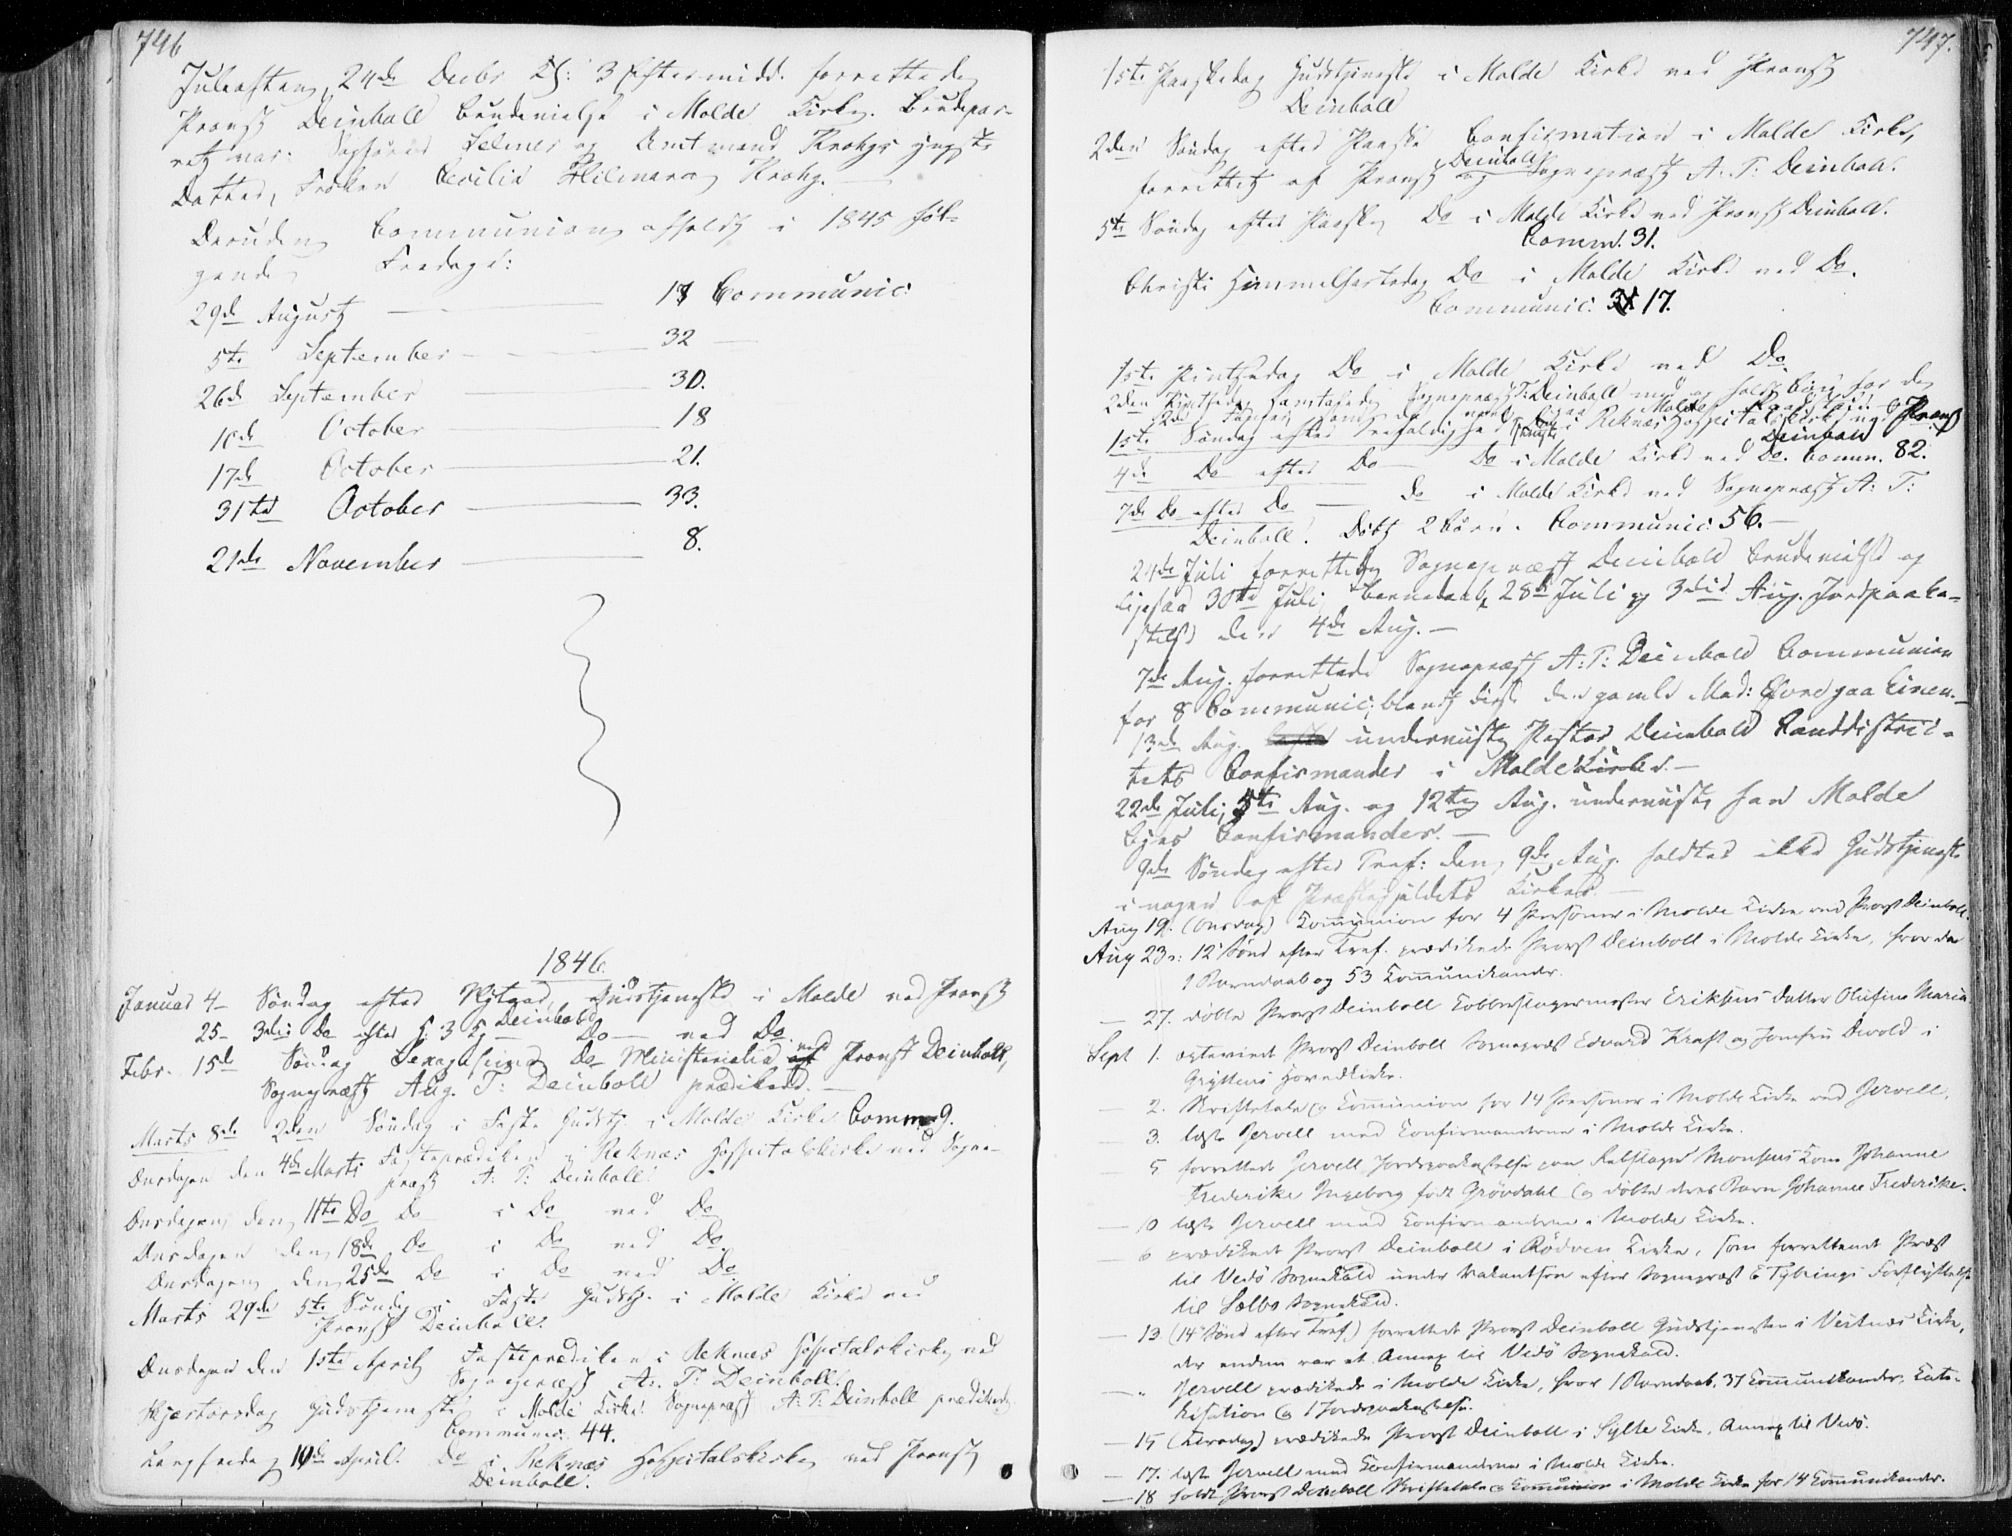 746
Juleaften, 24de Decbr Kl: 3 Eftermidd. forrettede
Provst Deinboll Brudevielse i Molde Kirke. Brudepar-
ret var: Sagfører Selmer og Amtmand Krohgs yngste
Datter, Frøken Cecilia Hilmara Krohg. —
Desuden Communion afholdt i 1845 føl-
gende Fredage:
29de August — 17 Communic:
5te September — 32 —
26de September — 30.
10de October — 18
17de October — 21.
31te October — 33.
21de November — 8.
1846.
Januar 4– Søndag efter Nytaar, Gudstjeneste i Molde ved Provst
Deinboll
25– 3die Do efter H: 3 K: — Do — ved Do
Febr. 15de Søndag Sexagesima Do Ministerialia ved Provst Deinboll,
Sognepræst Aug. T: Deinboll prædikede. —
Marts 8de 2den Søndag i Faste Gudstj. i Molde Kirke Comm 9.
Onsdagen den 4de Marts Fasteprædiken i Reknæs Hospitalskirke ved Sogne-
præst A: T: Deinboll.
Onsdagen den 11te Do Do i Do ved Do
Onsdagen den 18de Do i Do ved Do
Onsdagen den 25de Do i Do ved Do
Marts 29de 5te Søndag i Faste Gudstj. i Molde Kirke ved
Provst Deinboll.
Onsdagen den 1ste April Fasteprædiken i Reknæs Hospitalskirke ved
Sognepræst A: T: Deinboll.
Skjærtorsdag Gudstjeneste i Molde Kirke. Sognepræst A: T: Deinboll prædikede
Communic: 44.
Langfredag 10de April. Do i Reknæs Hospitalskirke ved Provst
Deinboll.
747.
1ste Paaskedag Gudstjeneste i Molde Kirke ved Provst
Deinboll
2den Søndag efter Paaske Confirmation i Molde Kirke,
forrettet af Provst Deinboll og Sognepræst A: T: Deinboll.
5te Søndag efter Paaske Do i Molde Kirke ved Provst Deinboll.
Comm. 31.
Christi Himmelfartsdag Do i Molde Kirke ved Do.
Communic: 17.
1ste Pintsedag Do i Molde Kirke ved Do.
2den Pintsedag Sognepræst T: Deinboll holdt Bøn for den
Molde
1ste Søndag efter Trefoldighed i Reknæs Hospitalskirke ved Provst
Deinboll
4de Do efter Do — Do i Molde Kirke ved Do. Comm. 82.
7de Do efter Do — Do i Molde Kirke ved Sognepræst A: T:
Deinboll. Døbt 2 Børn. Communic: 56. —
24de Juli forrettede Sognepræst Deinboll Brudevielse og
ligesaa 30te Juli, Barnedaab 28de Juli og 3die Aug. Jordpaaka-
stelse den 4de Aug. —
7de Aug. forrettede Sognepræst A: T: Deinboll Communion
for 8 Communic; blandt disse den gamle Mad: Øvre paa
13de Aug. underviiste Pastor Deinboll Landdistric-
tets Confirmander i Molde Kirke. —
22de Juli, 5te Aug. og 12te Aug. underviiste han Molde
Byes Confirmander. —
9de Søndag efter Tref: den 9de Aug. holdtes ikke Gudstjeneste
i nogen af Præstegjeldets Kirker —
Aug 19. (Onsdag) Communion for 4 Personer i Molde Kirke ved Provst Deinboll.
Aug 23: 12' Sønd efter Tref. prædikede Provst Deinboll i Molde Kirke, hvor der
1 Barndaab og 53 Communikander.
— 27. døbte Provst Deinboll Kobberslagermester Eriksens Datter Olufine Marie
Sept 1. egteviet Provst Deinboll Sognepræst Edvard Kraft og Jomfru Dewold i
Gryttens Hovedkirke.
— 2. Skriftetale og Communion for 14 Personer i Molde Kirke ved Jervell.
— 3. læste Jervell med Confirmanterne i Molde Kirke.
5. forrettede Jervell Jordpaakastelse paa Rebslager Monsens Kone Johanne
Frederike Ingeborg født Grøvdahl og døbte deres Barn Johanne Frederike.
— 10 læste Jervell med Confirmanterne i Molde Kirke.
— 6 prædikede Provst Deinboll i Rødven Kirke, som forrettende Præst
til Vedø Sognekald under Vakantsen efter Sognepræst E Tybrings Forflyttelse
til Sælbo Sognekald.
— 13 (14' Sønd efter Tref.) forrettede Provst Deinboll Gudstjenesten i Vestnæs Kirke,
der endnu var et Annex til Vedø Sognekald.
— " Jervell prædikede i Molde Kirke, hvor 1 Barndaab, 37 Communikander, Kate-
kisation og 1 Jordpaakastelse.
— 15 (Tirsdag) prædikede Provst Deinboll i Sylte Kirke, Annex til Vedø.
— 17. læste Jervell med Confirmanterne i Molde Kirke.
— 18 holdt Provst Deinboll Skriftetale og Communion i Molde Kirke for 14 Communikander.